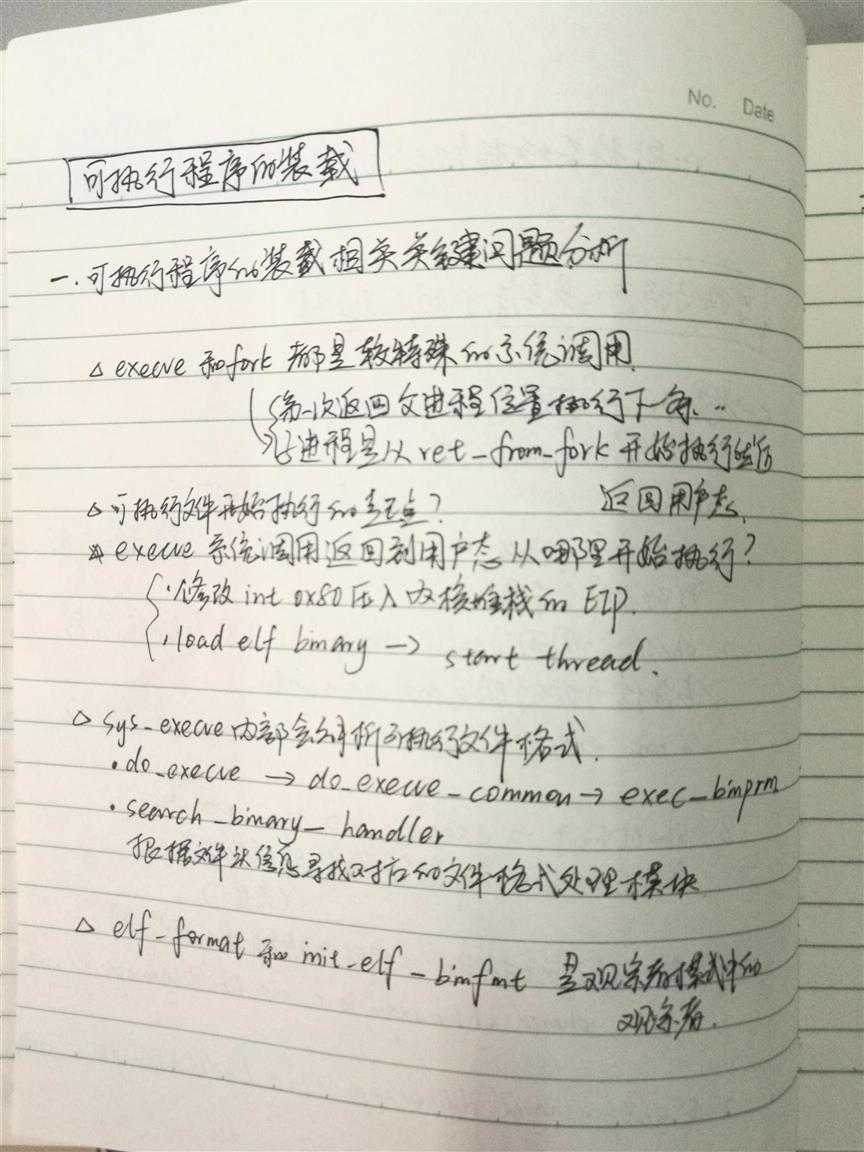 No. Date
可执行程序的装载
一.可执行程序的装载相关关键问题分析
△ execve 和fork 都是较特殊的系统调用.
第一次返回父进程位置执行下一条...
子进程是从ret_from_fork 开始执行然后
返回用户态.
△ 可执行文件开始执行的起点?
△ execve 系统调用返回到用户态从哪里开始执行?
·修改 int 0x80 压入内核堆栈的 EIP.
·load elf binary → start thread.
△ sys_execve内部会解析可执行文件格式.
·do_execve → do_execve_common → exec_binprm
·search_binary_handler
根据文件头信息寻找对应的文件格式处理模块
△ elf_format 和 init_elf_binfmt 是观察者模式中的
观察者.